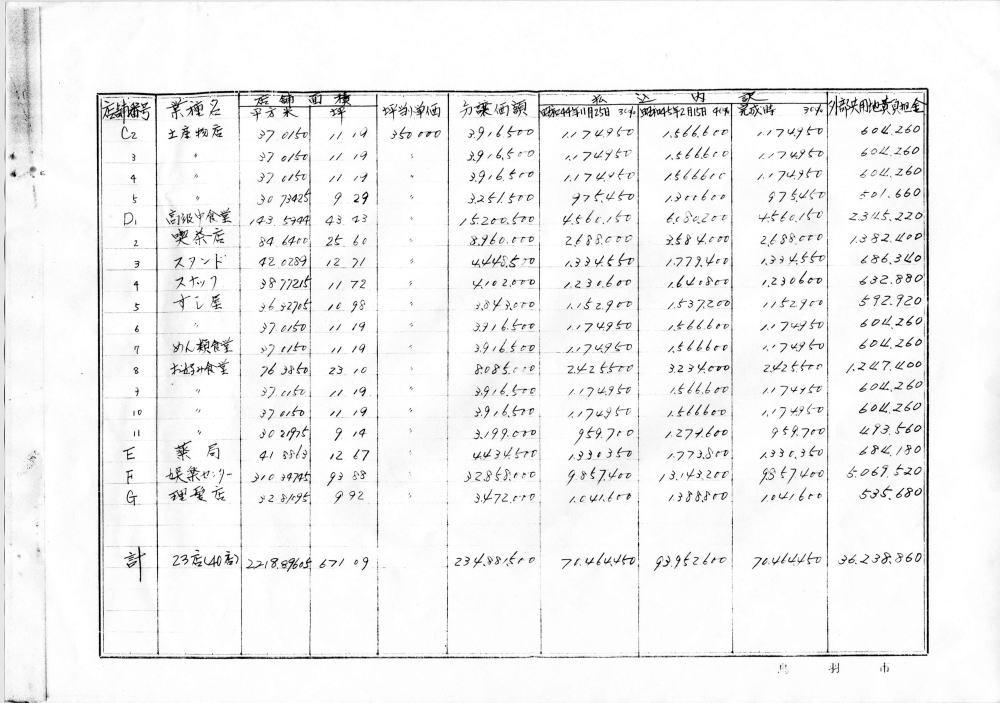 店舗番号 業種名 店舗面積 坪当単価 分譲価額 払込内訳 外部共用他費負担金
平方米 坪 昭和44年11月25日 30% 昭和45年2月15日 40% 完成時 30%
C2 土産物店 37 0150 11 19 350 000 3.916.500 1.174.950 1.566.600 1.174.950 604.260
3 〃 37 0150 11 19 〃 3.916.500 1.174.950 1.566.600 1.174.950 604.260
4 〃 37 0150 11 19 〃 3.916.500 1.174.950 1.566.600 1.174.950 604.260
5 〃 30 73425 9 29 〃 3.251.500 975.450 1.300.600 975.450 501.660
D1 高級中食堂 143 5944 43 43 〃 15.200.500 4.560.150 6.080.200 4.560.150 2.345.220
2 喫茶店 84 6400 25 60 〃 8.960.000 2.688.000 3.584.000 2.688.000 1.382.400
3 スタンド 42 0289 12 71 〃 4.448.500 1.334.550 1.779.400 1.334.550 686.340
4 スナック 38 77215 11 72 〃 4.102.000 1.230.600 1.640.800 1.230.600 632.880
5 すし屋 36 32705 10 98 〃 3.843.000 1.152.900 1.537.200 1.152.900 592.920
6 〃 37.0150 11 19 〃 3.916.500 1.174.950 1.566.600 1.174.950 604.260
7 めん類食堂 37 0150 11 19 〃 3.916.500 1.174.950 1.566.600 1.174.950 604.260
8 お好み食堂 76 3850 23 10 〃 8.085.000 2.425.500 3.234.000 2.425.500 1.247.400
9 〃 37.0150 11 19 〃 3.916.500 1.174.950 1.566.600 1.174.950 604.260
10 〃 37 0150 11 19 〃 3.916.500 1.174.950 1.566.600 1.174.950 604.260
11 〃 30 21975 9 14 〃 3.199.000 959.700 1.279.600 959.700 493.560
E 薬局 41 8863 12 67 〃 4.434.500 1.330.350 1.773.800 1.330.350 684.180
F 娯楽センター 310 34745 93 88 〃 32.858.000 9.857.400 13.143.200 9.857.400 5.069.520
G 理髪店 32 8195 9 92 〃 3.472.000 1.041.600 1.388.800 1.041.600 535.680
計 23店(40店) 2218.89605 671 09 234.881.500 70.464.450 93.952.600 70.464.450 36.238.860
鳥羽市